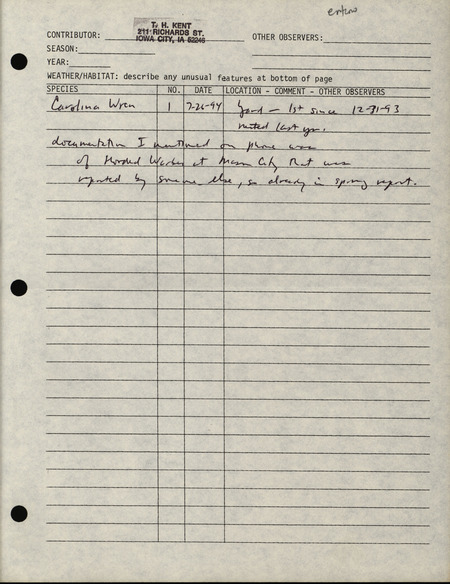 T. H. KENT
CONTRIBUTOR: 211 RICHARDS ST. OTHER OBSERVERS:
IOWA CITY, IA 52246
SEASON:
YEAR:
WEATHER/HABITAT: describe any unusual features at bottom of page
SPECIES NO. DATE LOCATION - COMMENT - OTHER OBSERVERS
Carolina Wren 1 7-26-94 Yard - 1st since 12-31-93
nested last yr.
documentation I mentioned on phone was
of Hooded Warbler at Mason City that was
reported by someone else, so already in spring report.